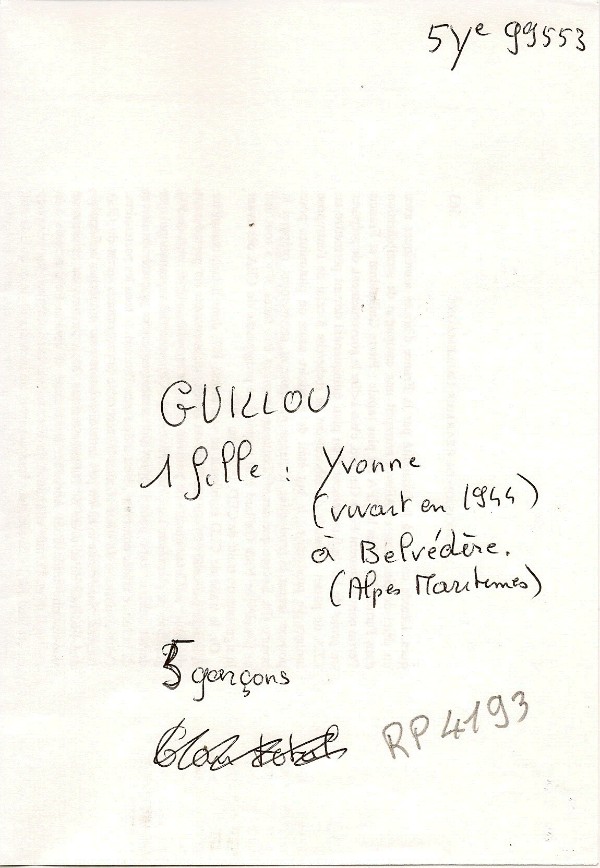 5Ye 99553
GUILLOU
1 fille : Yvonne
(vivait en 1944)
à Belvédère.
(Alpes Maritimes)
5 garçons
RP 4193